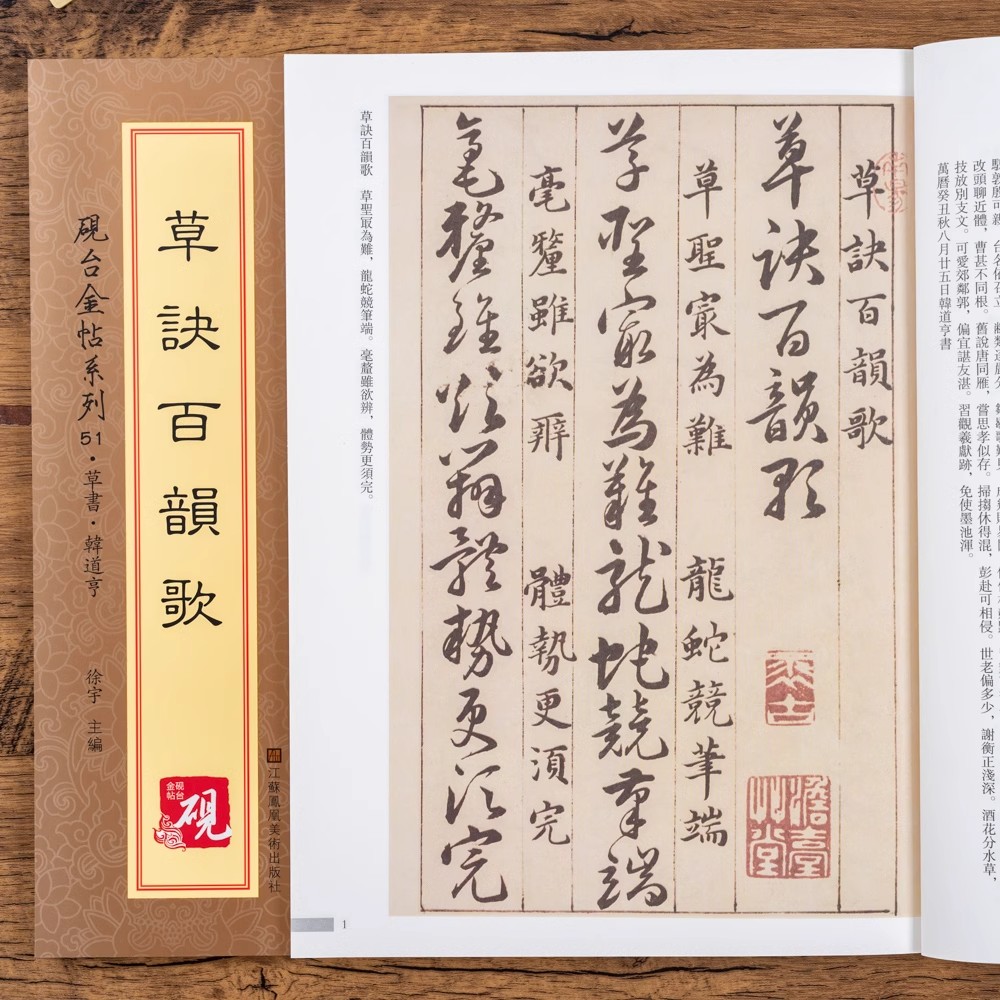 草訣百韻歌
硯台金帖系列51·草書·韓道亨
徐宇 主編
硯台
金帖
硯
江蘇鳳凰美術出版社
改頭聊近體，曹甚不同根。舊說唐同雁，嘗思孝似存。掃搊休得混，彭赴可相侵。世老偏多少，謝衡正淺深。酒花分水草，
技放別支文。可愛郊鄰郭，偏宜諶友湛。習觀羲獻跡，免使墨池渾。
萬曆癸丑秋八月廿五日韓道亨書
草訣百韻歌
草訣百韻歌
草聖㝡為難 龍蛇競筆端
草聖㝡為難龍蛇競筆端
毫釐雖欲辨 體勢更須完
毫釐雖欲辨體勢更須完
草訣百韻歌 草聖㝡為難，龍蛇競筆端。毫釐雖欲辨，體勢更須完。
1